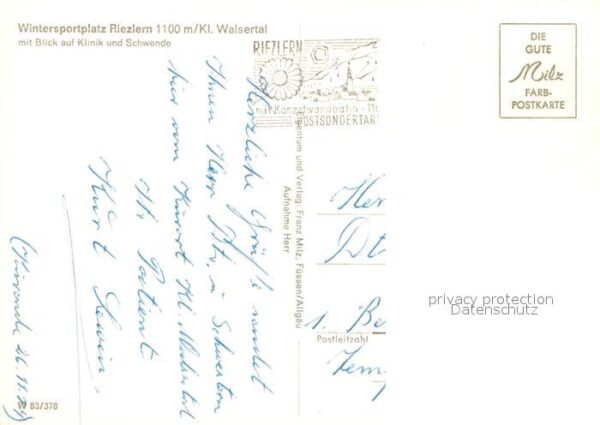 Wintersportplatz Riezlern 1100 m/Kl. Walsertal
mit Blick auf Klinik und Schwende
RIEZLERN
mit Kanzelwandbahn
POSTSONDERTAR
DIE
GUTE
Milz
FARB-
POSTKARTE
Herzliche Grüße sendet
Ihnen Herr u. Schwestern
hier vom Kurort Kl. Walsertal
Ihr Patient
Kurt Lewin
Eigentum und Verlag: Franz Milz, Füssen/Allgäu
Aufnahme Herr
1. Be
Postleitzahl
privacy protection
Datenschutz
W 83/378